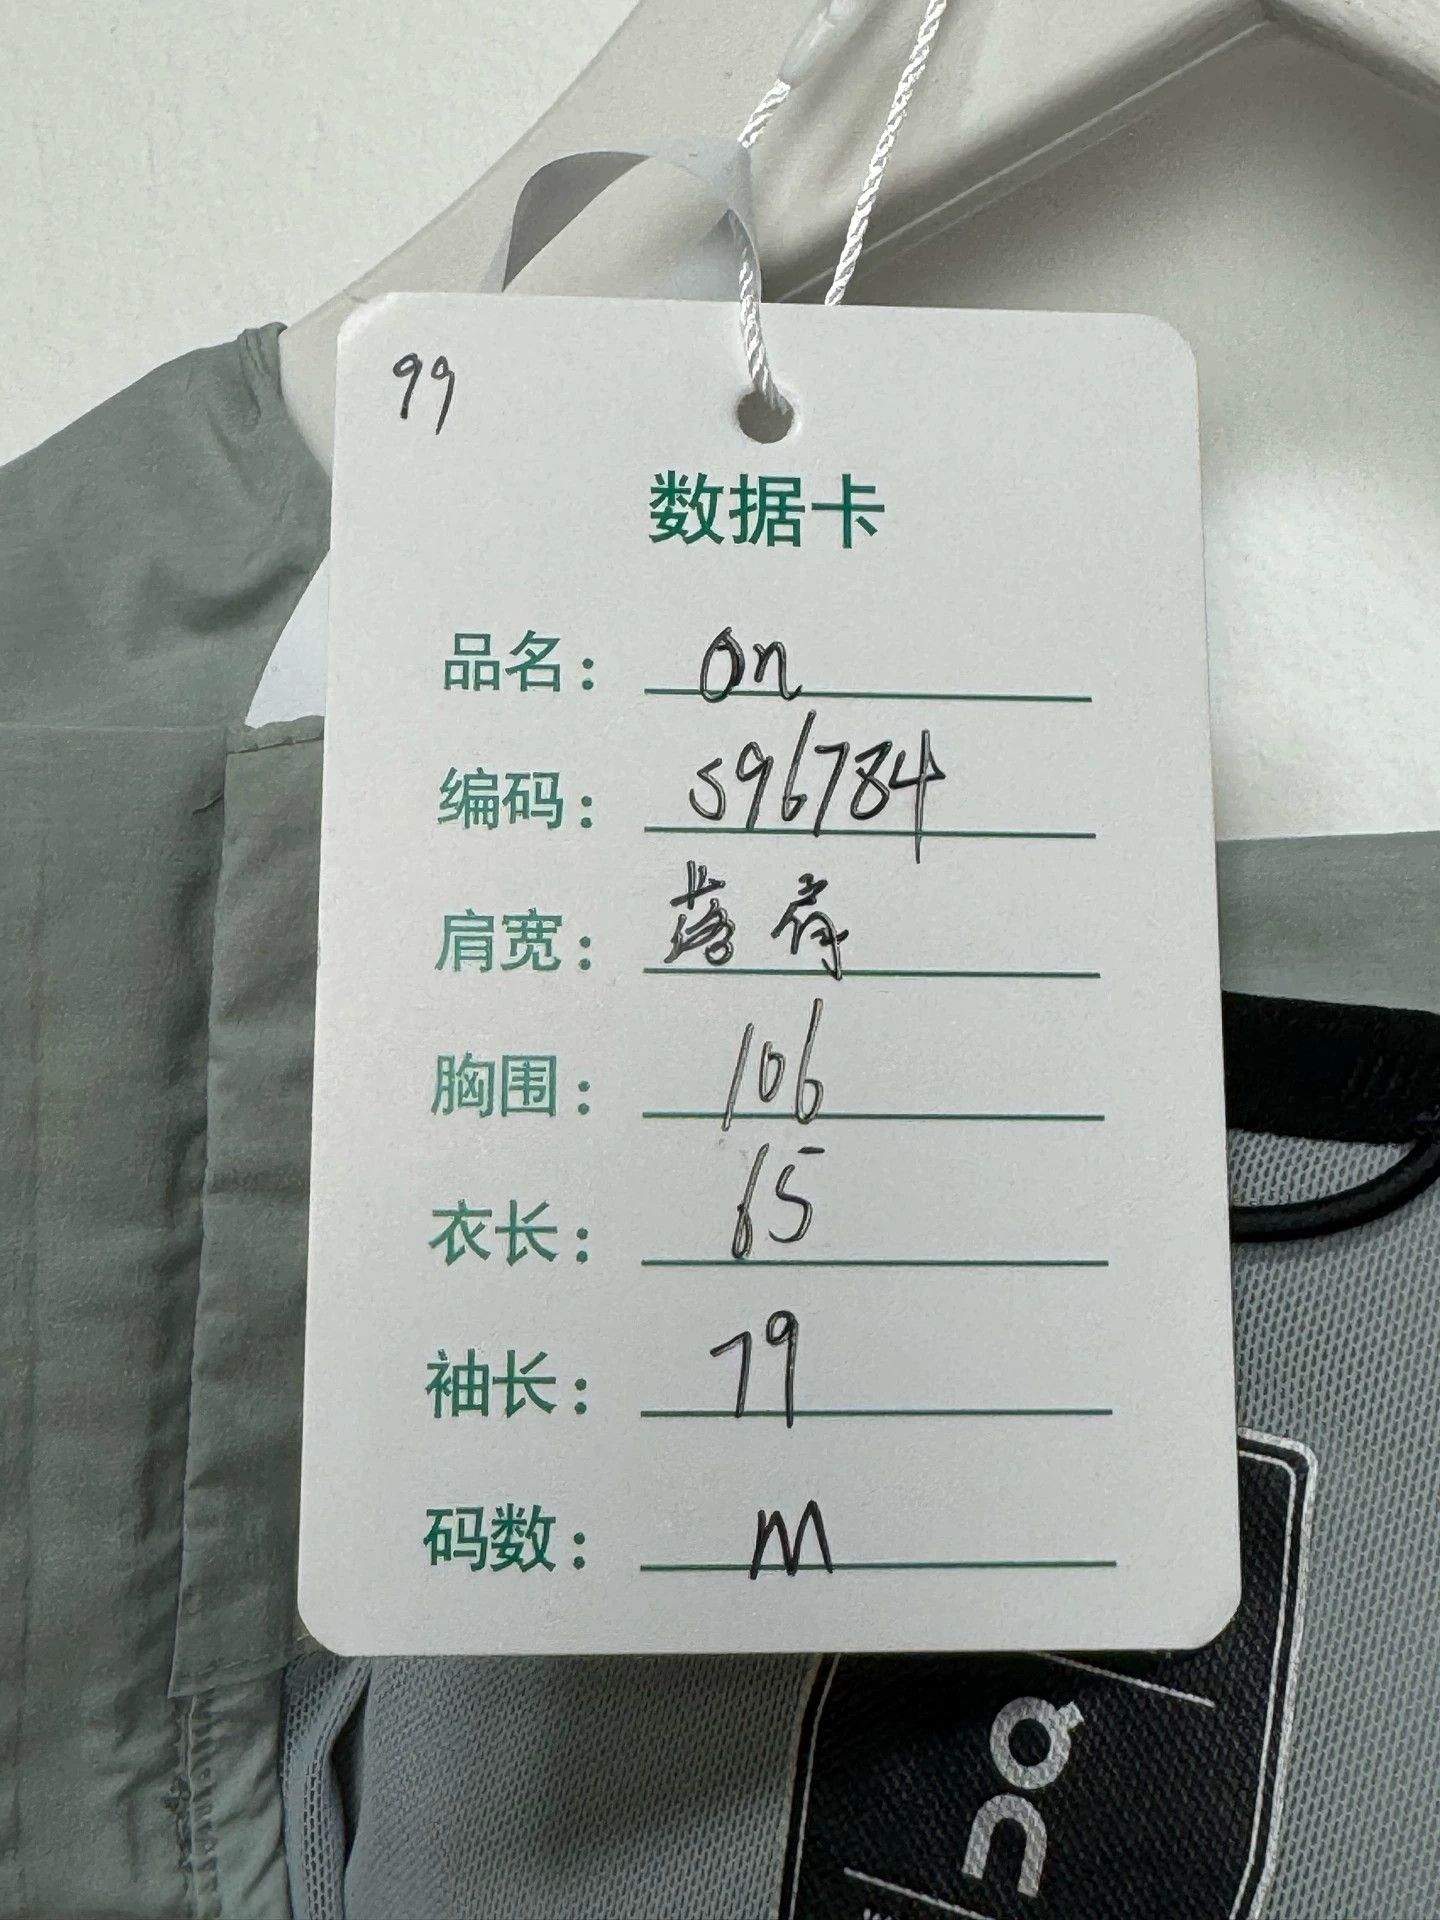 99
数据卡
品名: On
编码: S96784
肩宽: 落肩
胸围: 106
衣长: 65
袖长: 79
码数: M
On